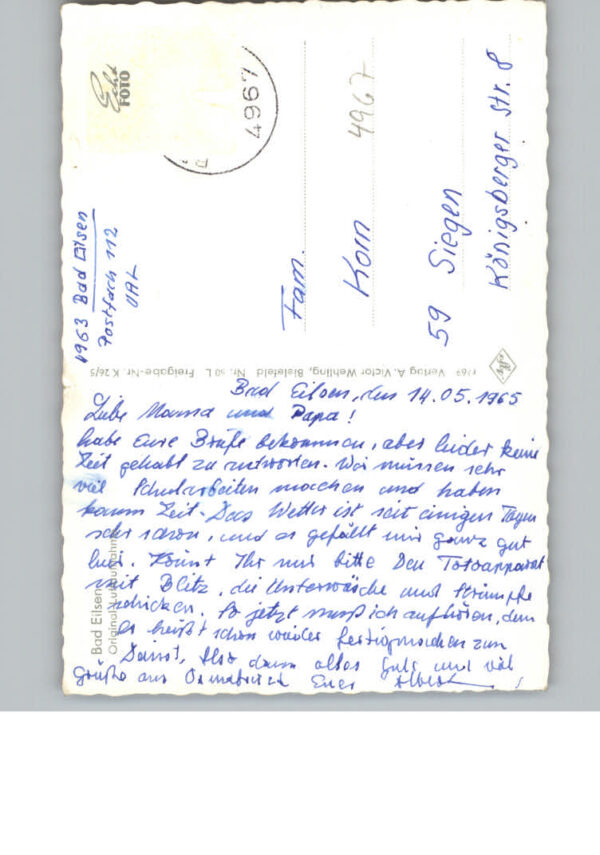 Echt
FOTO
4967
4967
4963 Bad Eilsen
Postfach 112
UAL
Fam.
Korn
59 Siegen
Königsberger Str. 8
Agfa
Verlag A. Victor Wehling, Bielefeld Nr. 50 L Freigabe-Nr. K 26/5
Bad Eilsen
Original-Luftaufnahme
Bad Eilsen, den 14.05.1965
Liebe Mama und Papa!
habe Eure Briefe bekommen, aber leider keine
Zeit gehabt zu antworten. Wir müssen sehr
viel Schularbeiten machen und haben
kaum Zeit. Das Wetter ist seit einigen Tagen
sehr schön, und es gefällt mir ganz gut
hier. Könnt Ihr mir bitte den Fotoapparat
mit Blitz, die Unterwäsche und Strümpfe
schicken. So jetzt muß ich aufhören, denn
es heißt schon wieder fertigmachen zum
Dienst, Also dann alles Gute und viel
Grüße aus Euer Albert!